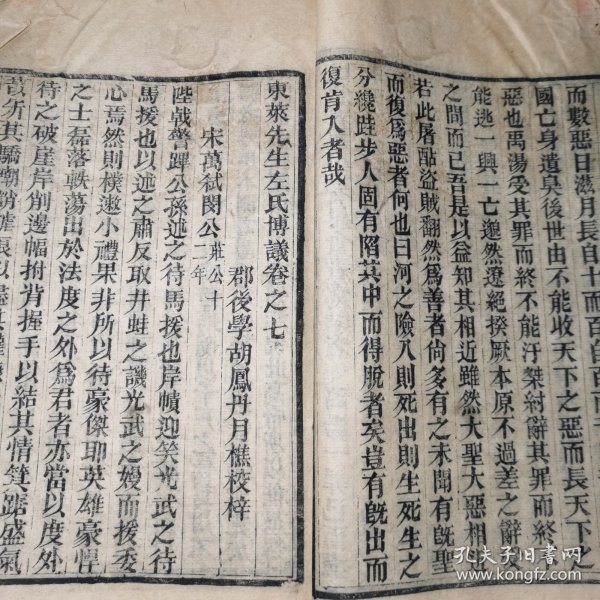 而數惡日滋月長自十而百自百而千
國亡身遺臭後世由不能收天下之惡而長天下之
惡也禹湯受其罪而終不能汙桀紂辭其罪而終
能逃一興一亡邈然遼絶揆厥本原不過差之辭受
之間而已吾是以益知其相近雖然大聖大惡相
若此屠酤盜賊翻然爲善者尙多有之未聞有旣聖
而復爲惡者何也曰河之險入則死出則生死生之
分纔跬步人固有陷其中而得脫者矣豈有旣出而
復肯入者哉
東萊先生左氏博議卷之七
郡後學胡鳳丹月樵校梓
宋萬弑閔公莊公十二年
陛戟警蹕公孫述之待馬援也岸幘迎笑光武之待
馬援也以述之肅反取井蛙之譏光武之嫚而援委
心焉然則樸遬小禮果非所以待豪傑耶英雄豪悍
之士磊落軼蕩出於法度之外爲君者亦當以度外
待之破崖岸削邊幅拊背握手以結其情箕踞盛氣
孔夫子旧书网
www.kongfz.com